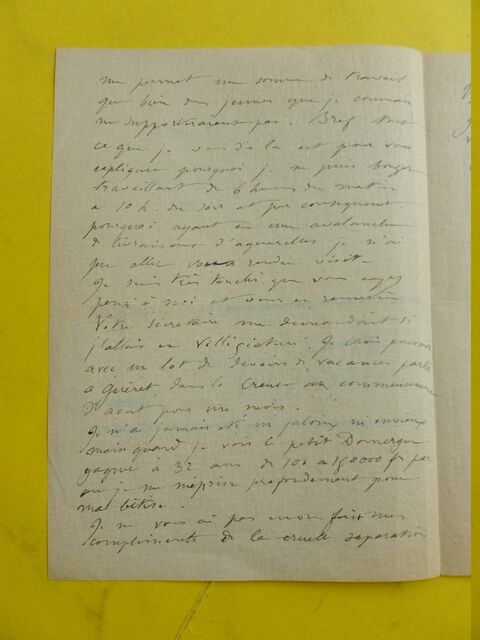 me permet une somme de travail
que bien des jeunes que je connais
ne supporteraient pas. Bref tout
ce que je vous dis là est pour vous
expliquer pourquoi je ne puis bouger
travaillant de 6 heures du matin
a 10 h. du soir et par conséquent
pourquoi ayant eu une avalanche
de livraisons d'aquarelles je n'ai
pu aller vous rendre visite
Je suis très touché que vous ayez
pensé à moi et vous en remercie
Votre secrétaire me demandait si
j'allais en villégiature. Je crois pouvoir
avec un lot de devoirs de vacances partir
a Guéret dans la Creuse au commencement
d'aout pour un mois.
Je n'ai jamais été ni jaloux ni envieux
mais quand je vois le petit Domergue
gagner à 32 ans de 100 a 150000 fr par
an je me méprise profondement pour
ma bêtise.
Je ne vous ai pas encore fait mes
compliments de la cruelle séparation